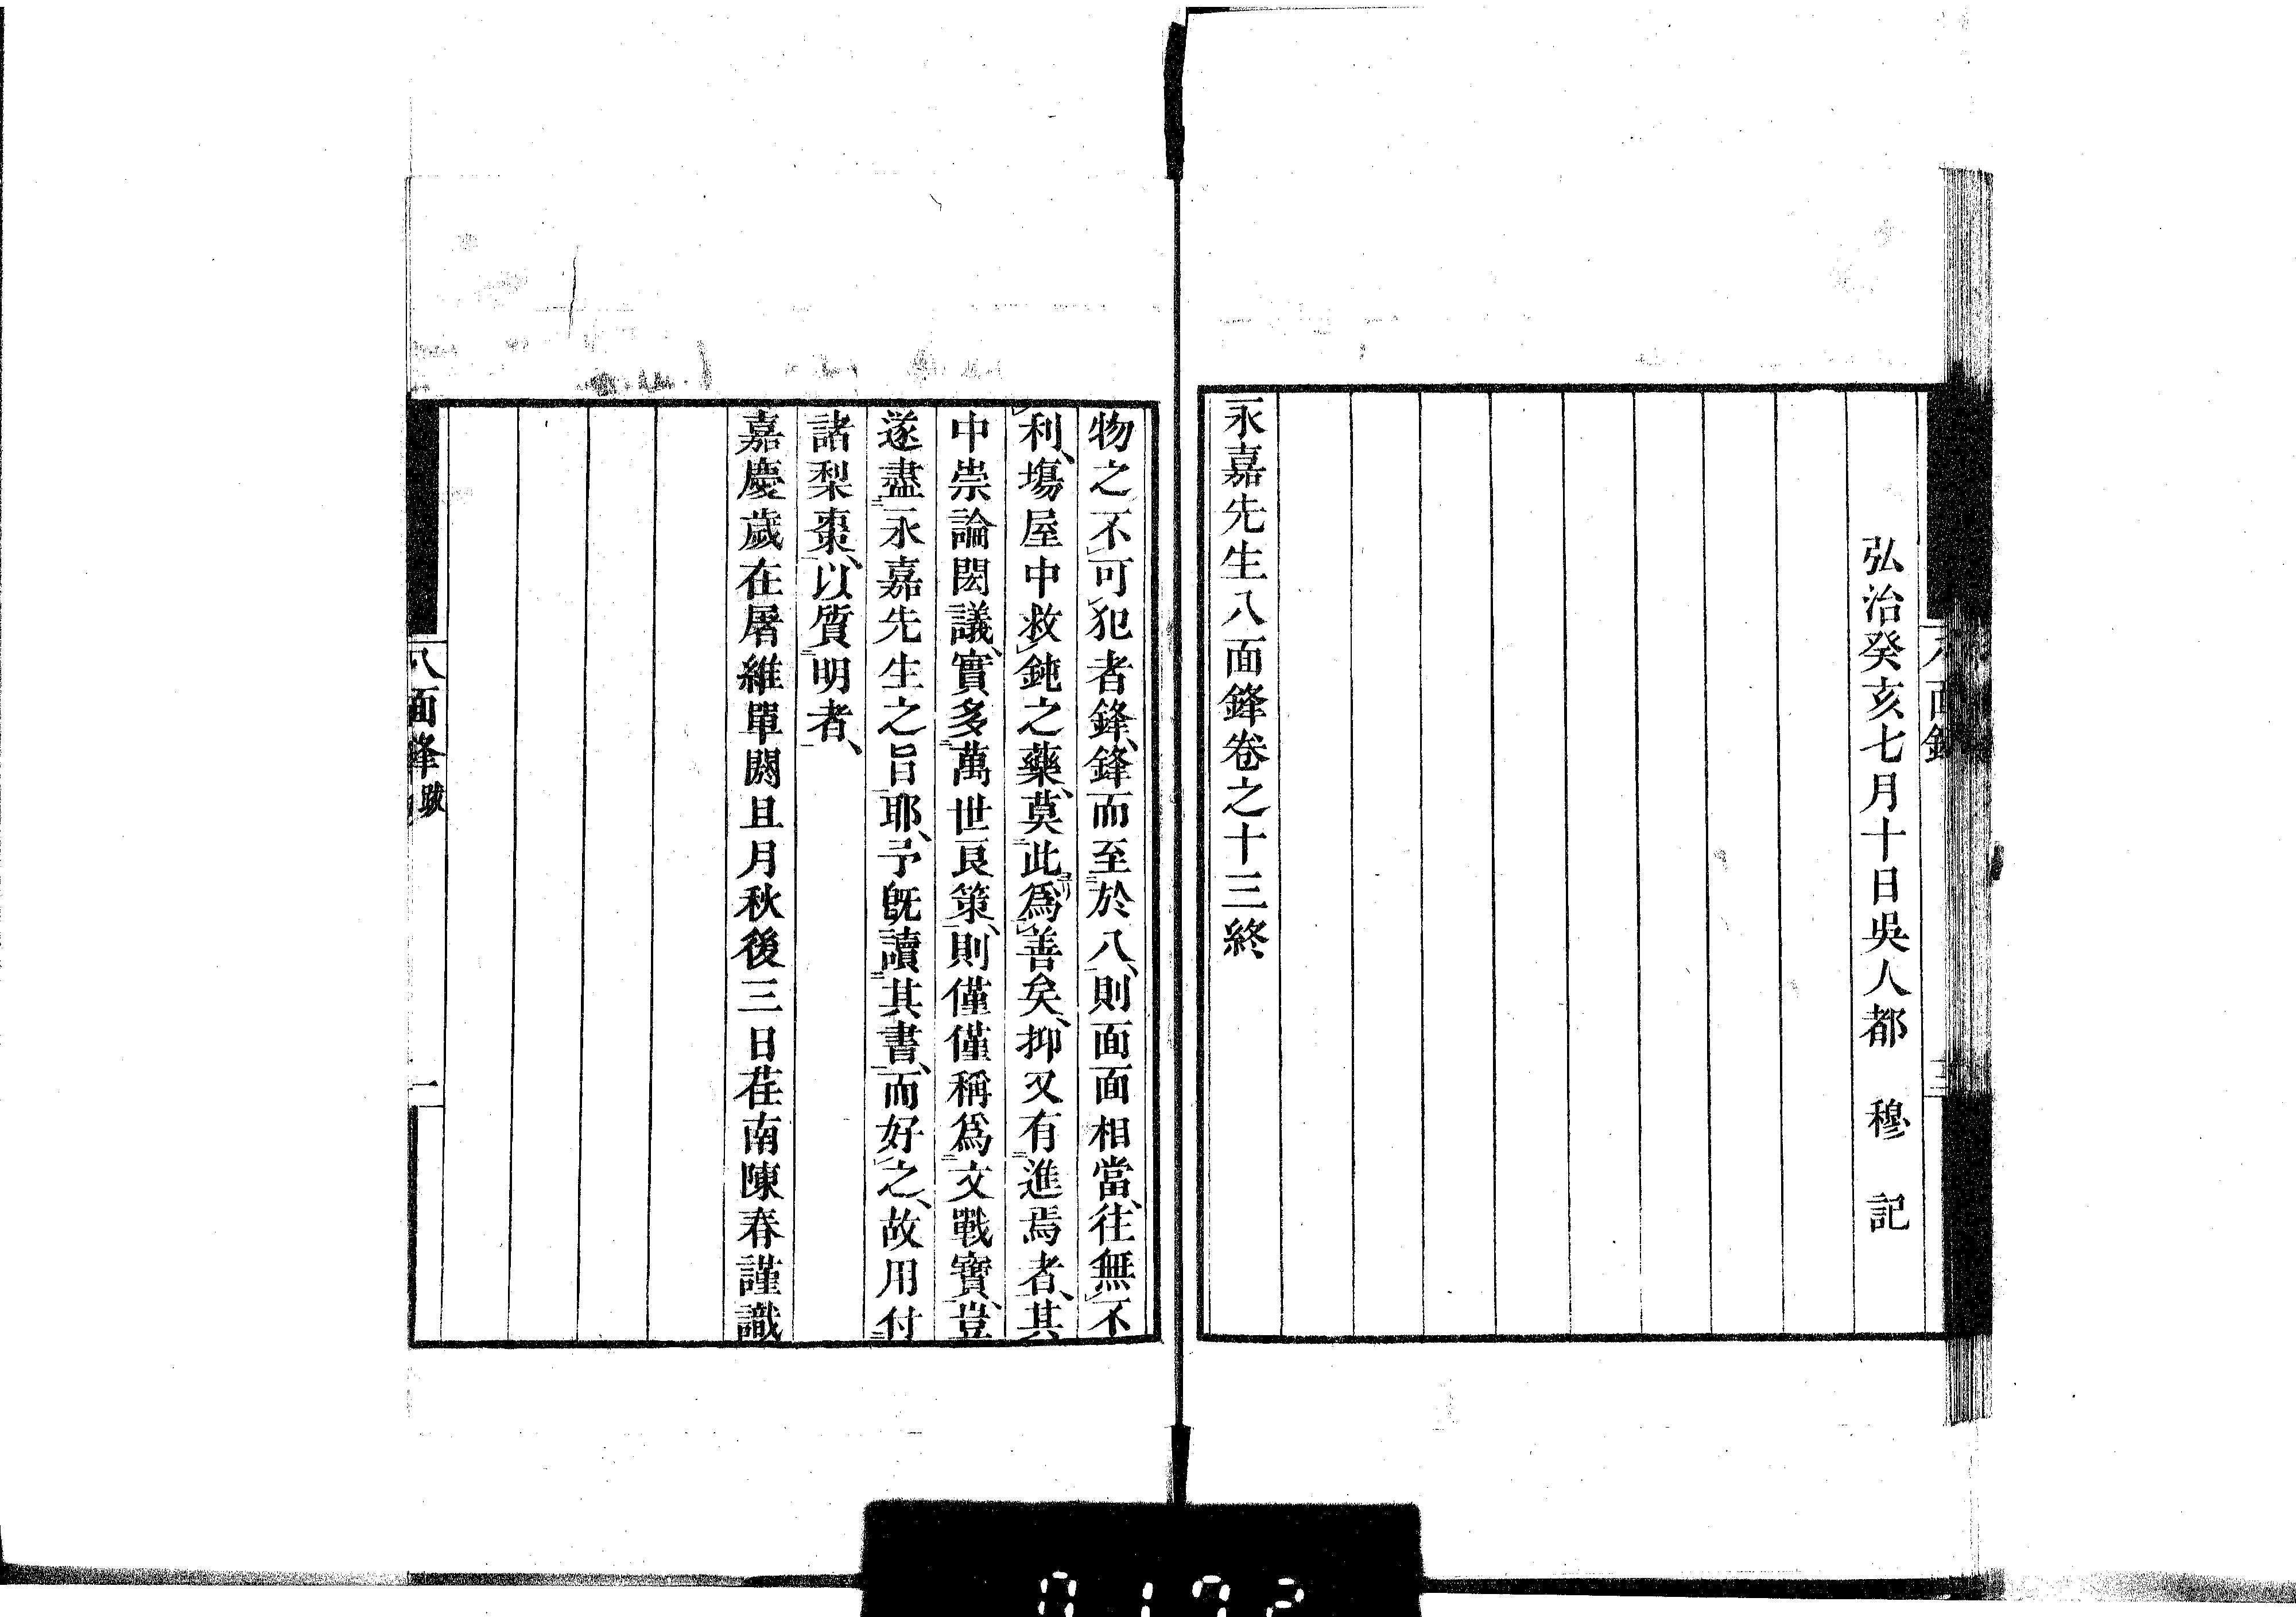 弘治癸亥七月十日吳人都　穆　記
永嘉先生八面鋒卷之十三終
物之不可犯者鋒、鋒而至於八、則面面相當、往無不
利、塲屋中救鈍之藥、莫此爲善矣、抑又有進焉者、其
中崇論閎議、實多萬世良策、則僅僅稱爲文戰寶、豈
遂盡永嘉先生之旨耶、予既讀其書、而好之、故用付
諸梨棗、以質明者、
嘉慶歲在屠維單閼且月秋後三日荏南陳春謹識
八面鋒跋
一
0172